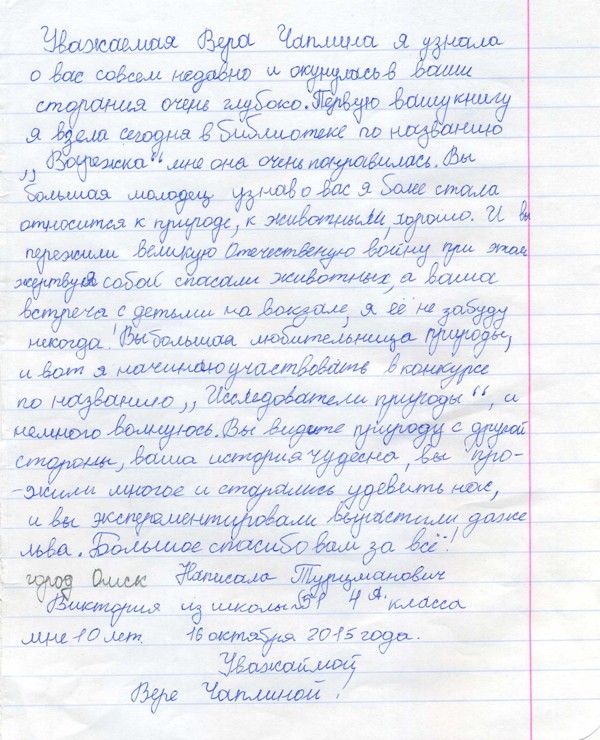 Уважаемая Вера Чаплина я узнала
о вас совсем недавно и окунулась в ваши
старания очень глубоко. Первую вашу книгу
я взела сегодня в библиотеке по названию
„Варежка“ мне она очень понравилась. Вы
большая молодец узнав о вас я более стала
относится к природе, к животными, хорошо. И вы
пережили великую Отечественую войну при этом
жертвуя собой спасали животных, а ваша
встреча с детьми на вокзале, я её не забуду
никогда! Вы большая любительница природы,
и вот я начинаю участвовать в конкурсе
по названию „Исследователи природы“, и
немного волнуюсь. Вы видите природу с другой
стороны, ваша история чудесна, вы про-
-жили многое и старались удевить нас,
и вы эксперементировали вырастили даже
льва. Большое спасибо вам за всё!
город Омск Написала
Виктория из школы №51 4 А класса
мне 10 лет. 16 октября 2015 года.
Уважаймой
Вере Чаплиной!